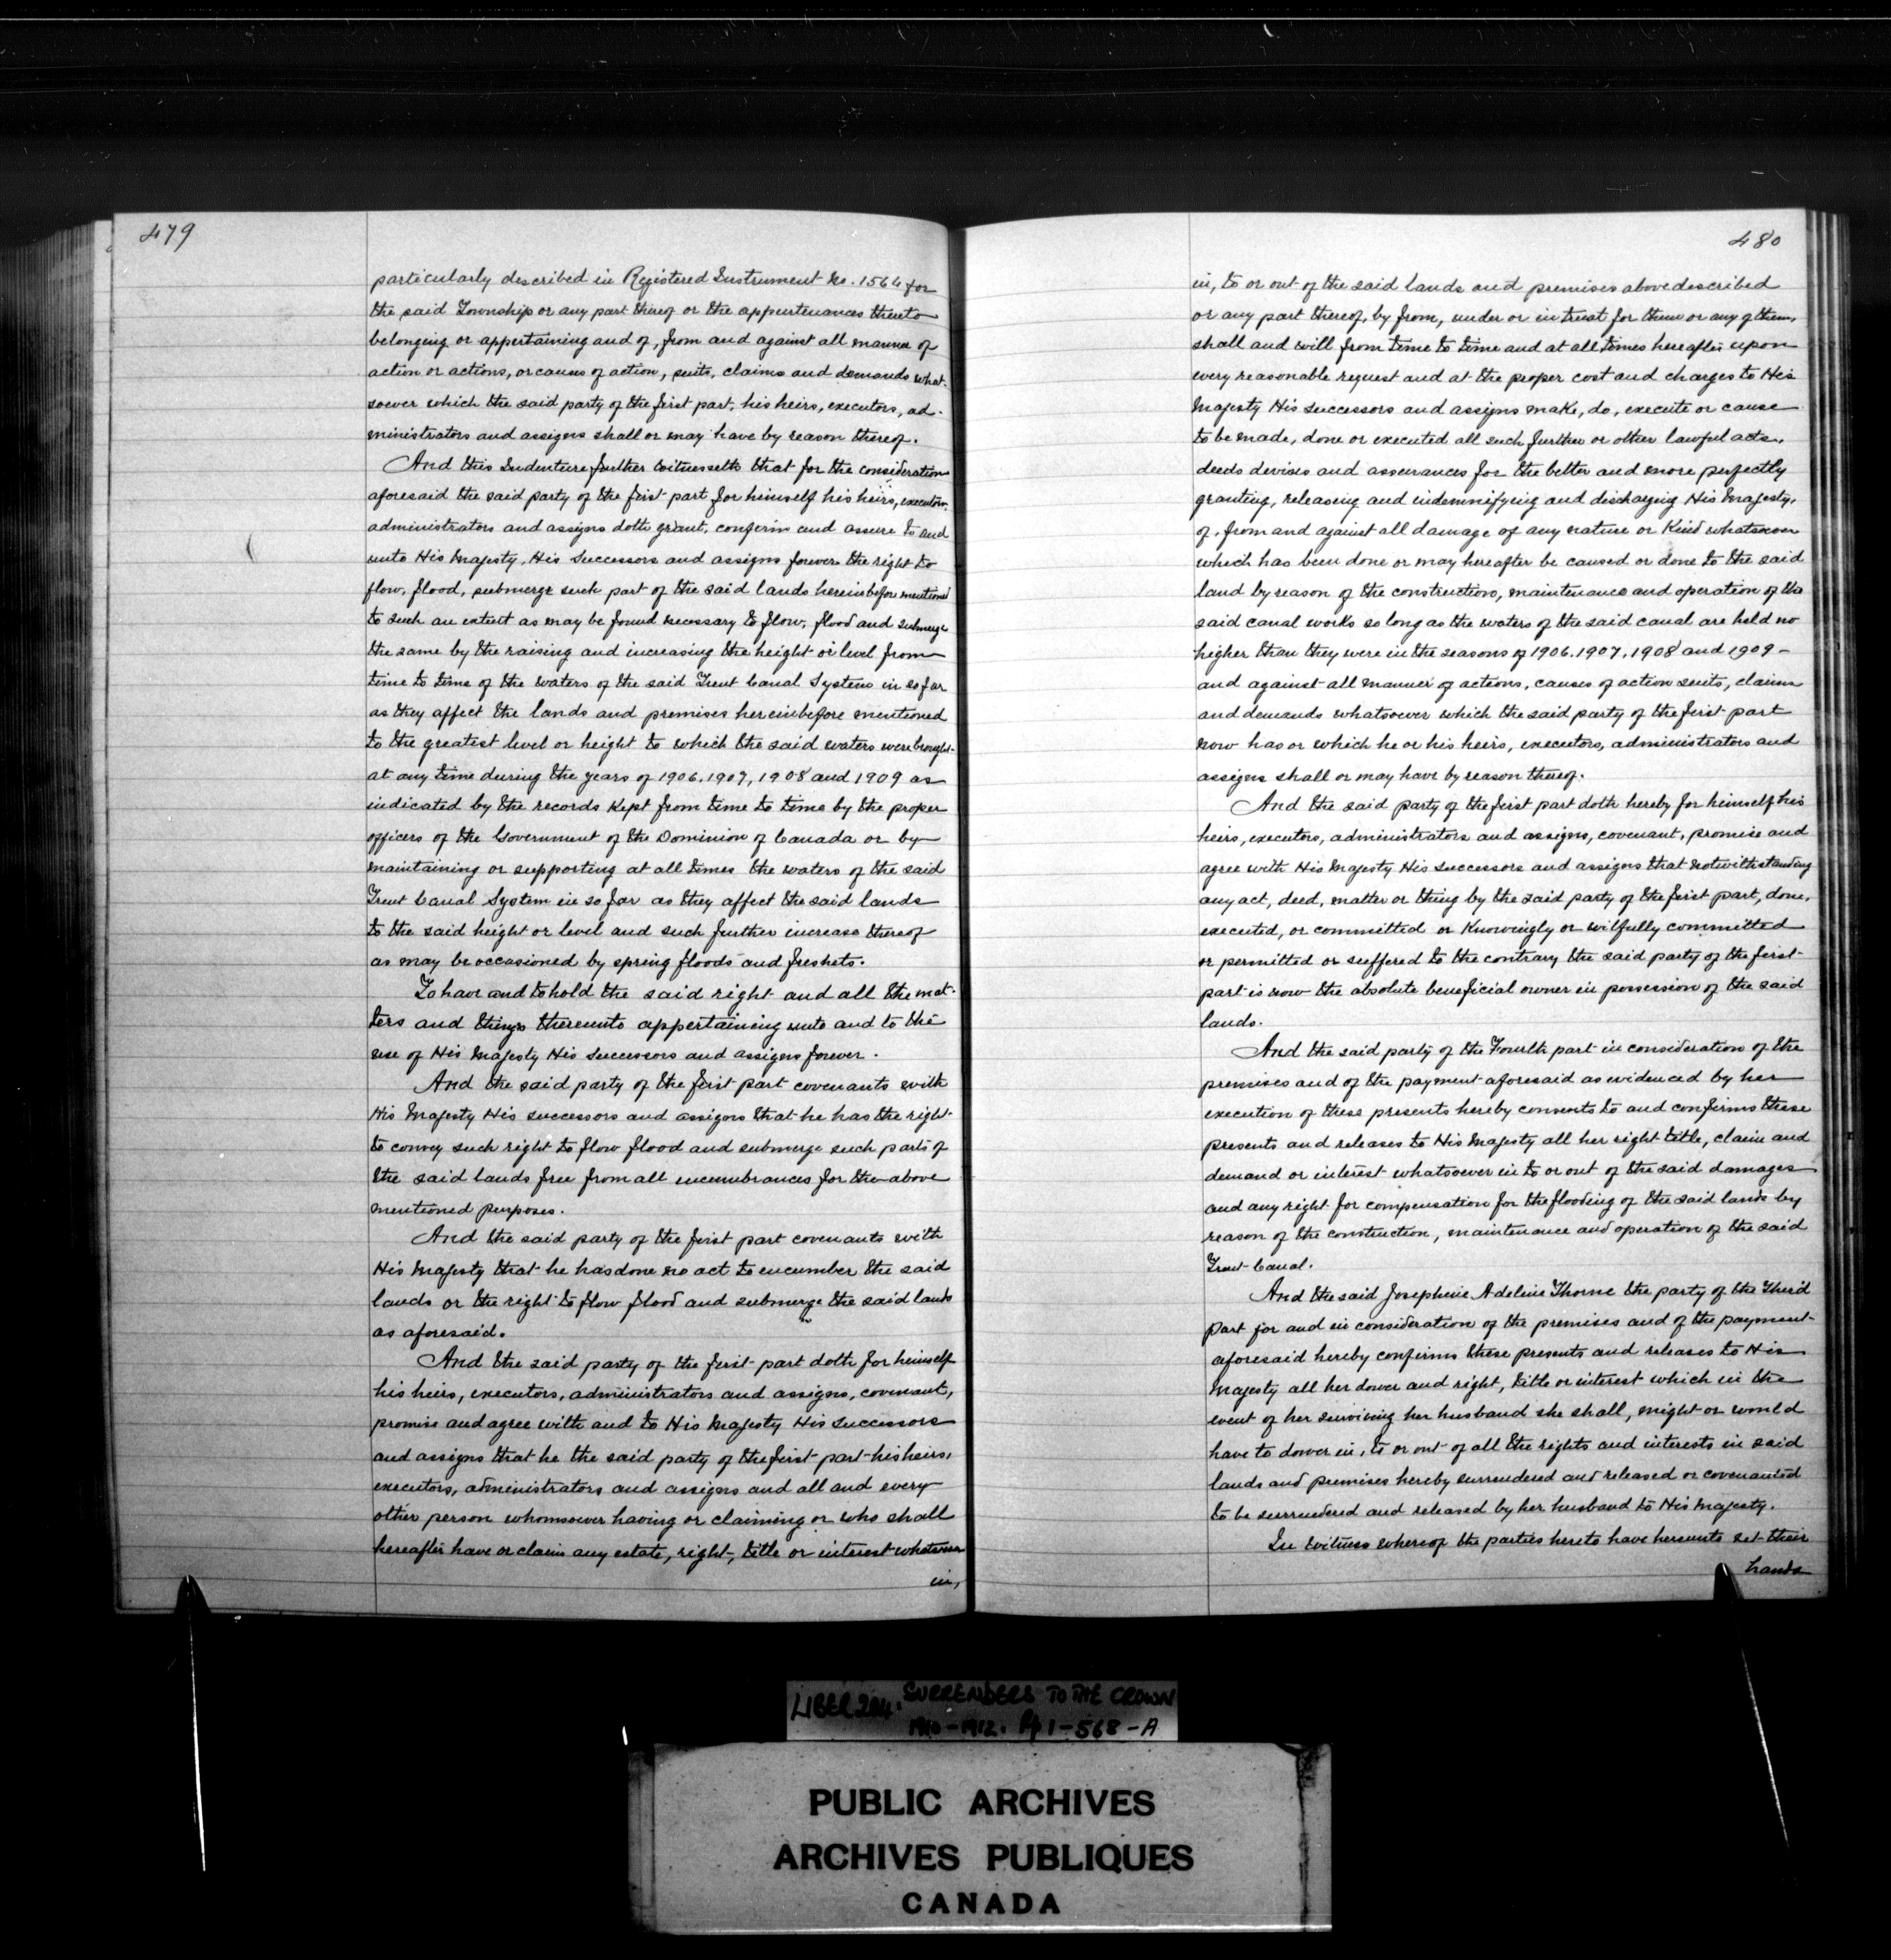 479
particularly described in Registered Instrument No. 1564 for
the said Township or any part thereof or the appurtenances thereto
belonging or appertaining and of, from and against all manner of
action or actions, or causes of action, suits, claims and demands what-
soever which the said party of the first part, his heirs, executors, ad-
ministrators and assigns shall or may have by reason thereof.
And this Indenture further witnesseth that for the consideration
aforesaid the said party of the first part for himself his heirs, executors,
administrators and assigns doth grant, confirm and assure to and
unto His Majesty, His Successors and assigns forever the right to
flow, flood, submerge such part of the said lands hereinbefore mentioned
to such an extent as may be found necessary to flow, flood and submerge
the same by the raising and increasing the height or level from
time to time of the waters of the said Trent Canal System in so far
as they affect the lands and premises hereinbefore mentioned
to the greatest level or height to which the said waters were brought
at any time during the years of 1906, 1907, 1908 and 1909 as
indicated by the records kept from time to time by the proper
officers of the Government of the Dominion of Canada or by
maintaining or supporting at all times the waters of the said
Trent Canal System in so far as they affect the said lands
to the said height or level and such further increase thereof
as may be occasioned by spring floods and freshets.
To have and to hold the said right and all the mat-
ters and things thereunto appertaining unto and to the
use of His Majesty His Successors and assigns forever.
And the said party of the first part covenants with
His Majesty His successors and assigns that he has the right
to convey such right to flow flood and submerge such parts of
the said lands free from all incumbrances for the above
mentioned purposes.
And the said party of the first part covenants with
His Majesty that he has done no act to encumber the said
lands or the right to flow flood and submerge the said lands
as aforesaid.
And the said party of the first part doth for himself
his heirs, executors, administrators and assigns, covenant,
promise and agree with and to His Majesty His Successors
and assigns that he the said party of the first part his heirs,
executors, administrators and assigns and all and every
other person whomsoever having or claiming or who shall
hereafter have or claim any estate, right, title or interest whatsoever
in,
480
in, to or out of the said lands and premises above described
or any part thereof, by from, under or in trust for them or any of them,
shall and will from time to time and at all times hereafter upon
every reasonable request and at the proper cost and charges to His
Majesty His Successors and assigns make, do, execute or cause
to be made, done or executed all such further or other lawful acts,
deeds devises and assurances for the better and more perfectly
granting, releasing and indemnifying and discharging His Majesty,
of, from and against all damage of any nature or kind whatsoever
which has been done or may hereafter be caused or done to the said
land by reason of the construction, maintenance and operation of the
said canal works so long as the waters of the said canal are held no
higher than they were in the seasons of 1906, 1907, 1908 and 1909 -
and against all manner of actions, causes of action suits, claims
and demands whatsoever which the said party of the first part
now has or which he or his heirs, executors, administrators and
assigns shall or may have by reason thereof.
And the said party of the first part doth hereby for himself his
heirs, executors, administrators and assigns, covenant, promise and
agree with His Majesty His Successors and assigns that notwithstanding
any act, deed, matter or thing by the said party of the first part, done,
executed, or committed or knowingly or wilfully committed
or permitted or suffered to the contrary the said party of the first
part is now the absolute beneficial owner in possession of the said
lands.
And the said party of the Fourth part in consideration of the
premises and of the payment aforesaid as evidenced by her
execution of these presents hereby consents to and confirms these
presents and releases to His Majesty all her right title, claim and
demand or interest whatsoever in to or out of the said damages
and any right for compensation for the flooding of the said lands by
reason of the construction, maintenance and operation of the said
Trent Canal.
And the said Josephine Adeline Thorne the party of the Third
part for and in consideration of the premises and of the payment
aforesaid hereby confirms these presents and releases to His
Majesty all her dower and right, title or interest which in the
event of her surviving her husband she shall, might or would
have to dower in, to or out of all the rights and interests in said
lands and premises hereby surrendered and released or covenanted
to be surrendered and released by her husband to His Majesty.
In witness whereof the parties hereto have hereunto set their
hands
LIBER 204. SURRENDERS TO THE CROWN
1910-1912. Pp 1-568-A
PUBLIC ARCHIVES
ARCHIVES PUBLIQUES
CANADA